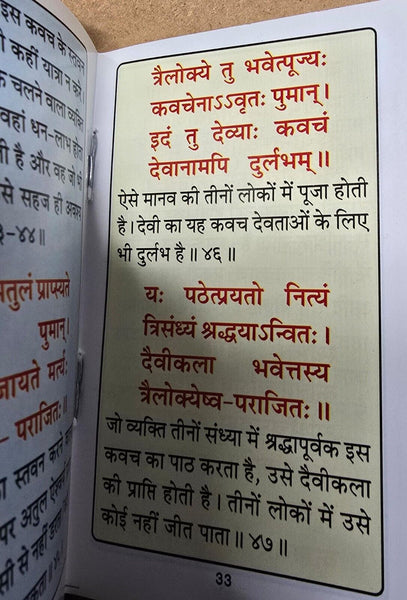 इस कवच के स्तवन
कहीं यात्रा न करे
के चलने वाला व्यक्ति
वहां धन-लाभ होता
ती है और वह जो भी
से सहज ही अवश्य
३-४४॥
मतुलं प्राप्स्यते
पुमान्।
जायते मर्त्यः
पराजितः॥
का स्तवन करने
पर अतुल ऐश्वर्य
सी से नहीं डरता
त्रैलोक्ये तु भवेत्पूज्यः
कवचेनाऽऽवृतः पुमान्।
इदं तु देव्याः कवचं
देवानामपि दुर्लभम्॥
ऐसे मानव की तीनों लोकों में पूजा होती
है। देवी का यह कवच देवताओं के लिए
भी दुर्लभ है॥४६॥
यः पठेत्प्रयतो नित्यं
त्रिसंध्यं श्रद्धयाऽन्वितः।
दैवीकला भवेत्तस्य
त्रैलोक्येष्व-पराजितः॥
जो व्यक्ति तीनों संध्या में श्रद्धापूर्वक इस
कवच का पाठ करता है, उसे दैवीकला
की प्राप्ति होती है। तीनों लोकों में उसे
कोई नहीं जीत पाता॥४७॥
33